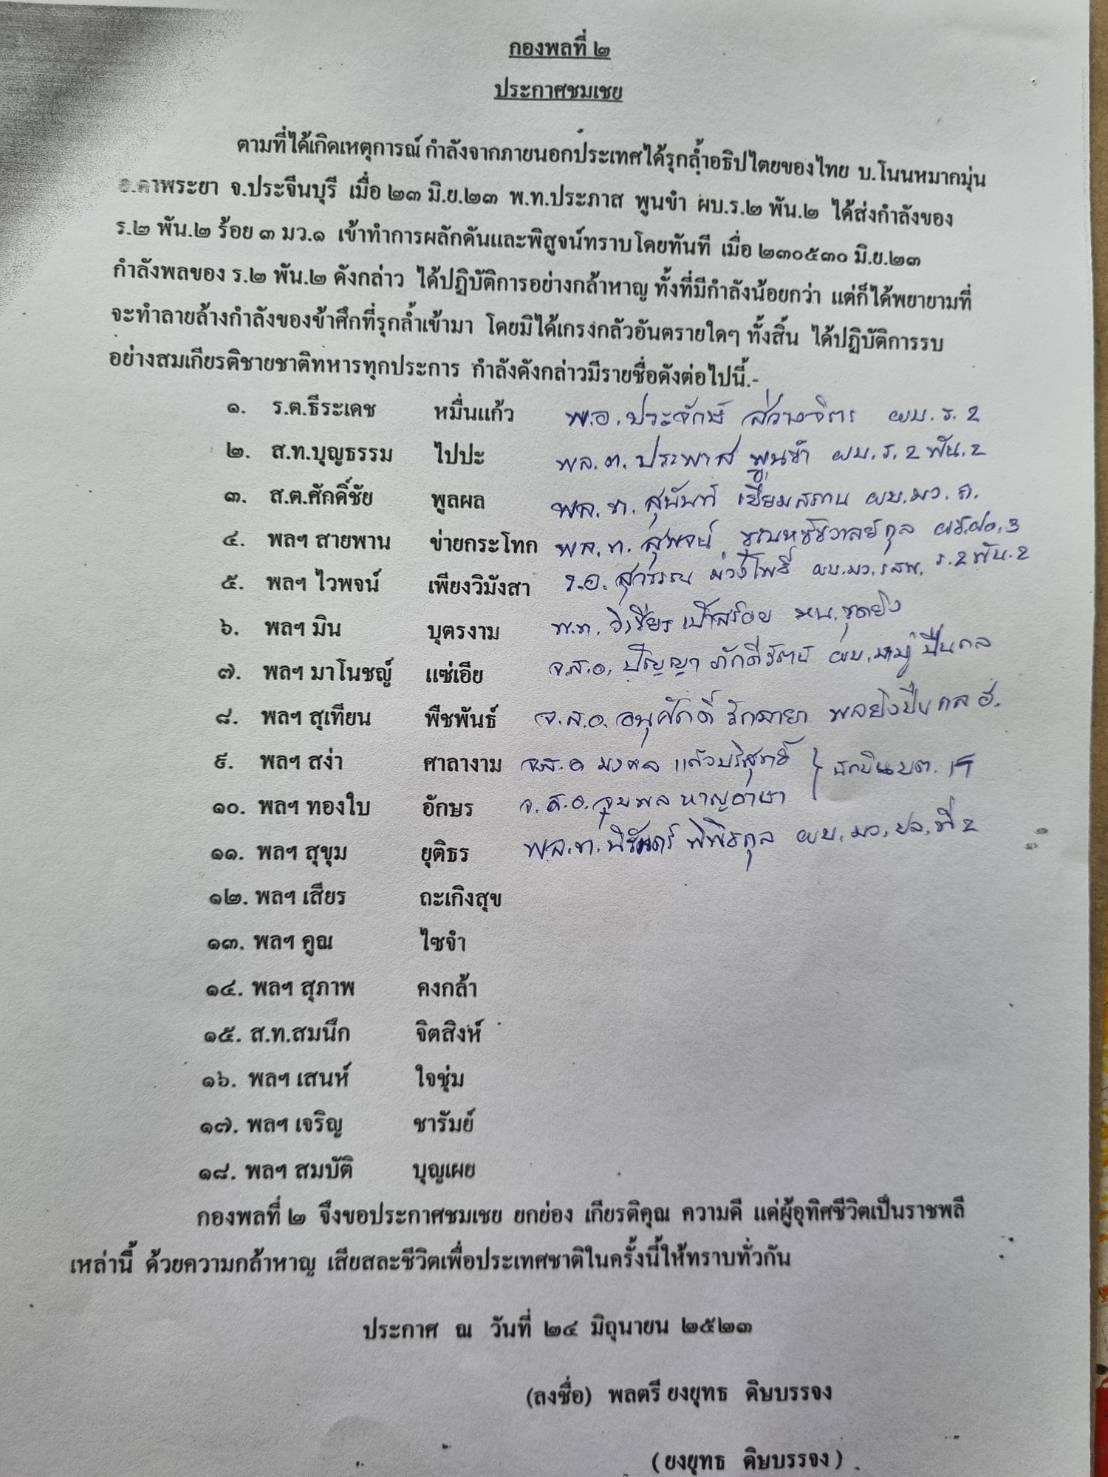 กองพลที่ ๒
ประกาศชมเชย
ตามที่ได้เกิดเหตุการณ์ กำลังจากภายนอกประเทศได้รุกล้ำอธิปไตยของไทย บ.โนนหมากมุ่น
อ.ตาพระยา จ.ประจีนบุรี เมื่อ ๒๓ มิ.ย.๒๓ พ.ท.ประภาส พูนขำ ผบ.ร.๒ พัน.๒ ได้ส่งกำลังของ
ร.๒ พัน.๒ ร้อย ๓ มว.๑ เข้าทำการผลักดันและพิสูจน์ทราบโดยทันที เมื่อ ๒๓๐๕๓๐ มิ.ย.๒๓
กำลังพลของ ร.๒ พัน.๒ ดังกล่าว ได้ปฏิบัติการอย่างกล้าหาญ ทั้งที่มีกำลังน้อยกว่า แต่ก็ได้พยายามที่
จะทำลายล้างกำลังของข้าศึกที่รุกล้ำเข้ามา โดยมิได้เกรงกลัวอันตรายใดๆ ทั้งสิ้น ได้ปฏิบัติการรบ
อย่างสมเกียรติชายชาติทหารทุกประการ กำลังดังกล่าวมีรายชื่อดังต่อไปนี้.-
๑. ร.ต.ธีระเดช หมื่นแก้ว พ.อ.ประจักษ์ สว่างจิตร ผบ.ร.2
๒. ส.ท.บุญธรรม ไปปะ พล.ต.ประพาส พูนขำ ผบ.ร.2 พัน.2
๓. ส.ต.ศักดิ์ชัย พูลผล พล.ท.สุนันท์ ผบ.มว.ค.
๔. พลฯ สายพาน ข่ายกระโทก พล.ท.สุพจน์
๕. พลฯ ไวพจน์ เพียงวิมังสา ร.อ. ม่วงโพธิ์ ผบ.มว. ร.2 พัน.2
๖. พลฯ มิน บุตรงาม พ.ท.วิเชียร หน.ชุดยิง
๗. พลฯ มาโนชญ์ แซ่เอีย จ.ส.อ.ปัญญา ภักดีรัตน์ ผบ.หมู่ ปืนกล
๘. พลฯ สุเทียน พืชพันธ์ จ.ส.อ.อนุศักดิ์ พลยิงปืนกล
๙. พลฯ สง่า ศาลางาม จ.ส.อ มงคล แก้วบริสุทธิ์
๑๐. พลฯ ทองใบ อักษร จ.ส.อ.จุมพล หาญอาษา
๑๑. พลฯ สุขุม ยุติธร พล.ท. พิพิธกุล ผบ.มว.ปล.ที่ 2
๑๒. พลฯ เสียร ถะเกิงสุข
๑๓. พลฯ คูณ ไซจำ
๑๔. พลฯ สุภาพ คงกล้า
๑๕. ส.ท.สมนึก จิตสิงห์
๑๖. พลฯ เสนห์ ใจชุ่ม
๑๗. พลฯ เจริญ ชารัมย์
๑๘. พลฯ สมบัติ บุญเผย
กองพลที่ ๒ จึงขอประกาศชมเชย ยกย่อง เกียรติคุณ ความดี แด่ผู้อุทิศชีวิตเป็นราชพลี
เหล่านี้ ด้วยความกล้าหาญ เสียสละชีวิตเพื่อประเทศชาติในครั้งนี้ให้ทราบทั่วกัน
ประกาศ ณ วันที่ ๒๔ มิถุนายน ๒๕๒๓
(ลงชื่อ) พลตรี ยงยุทธ ดิษบรรจง
(ยงยุทธ ดิษบรรจง)